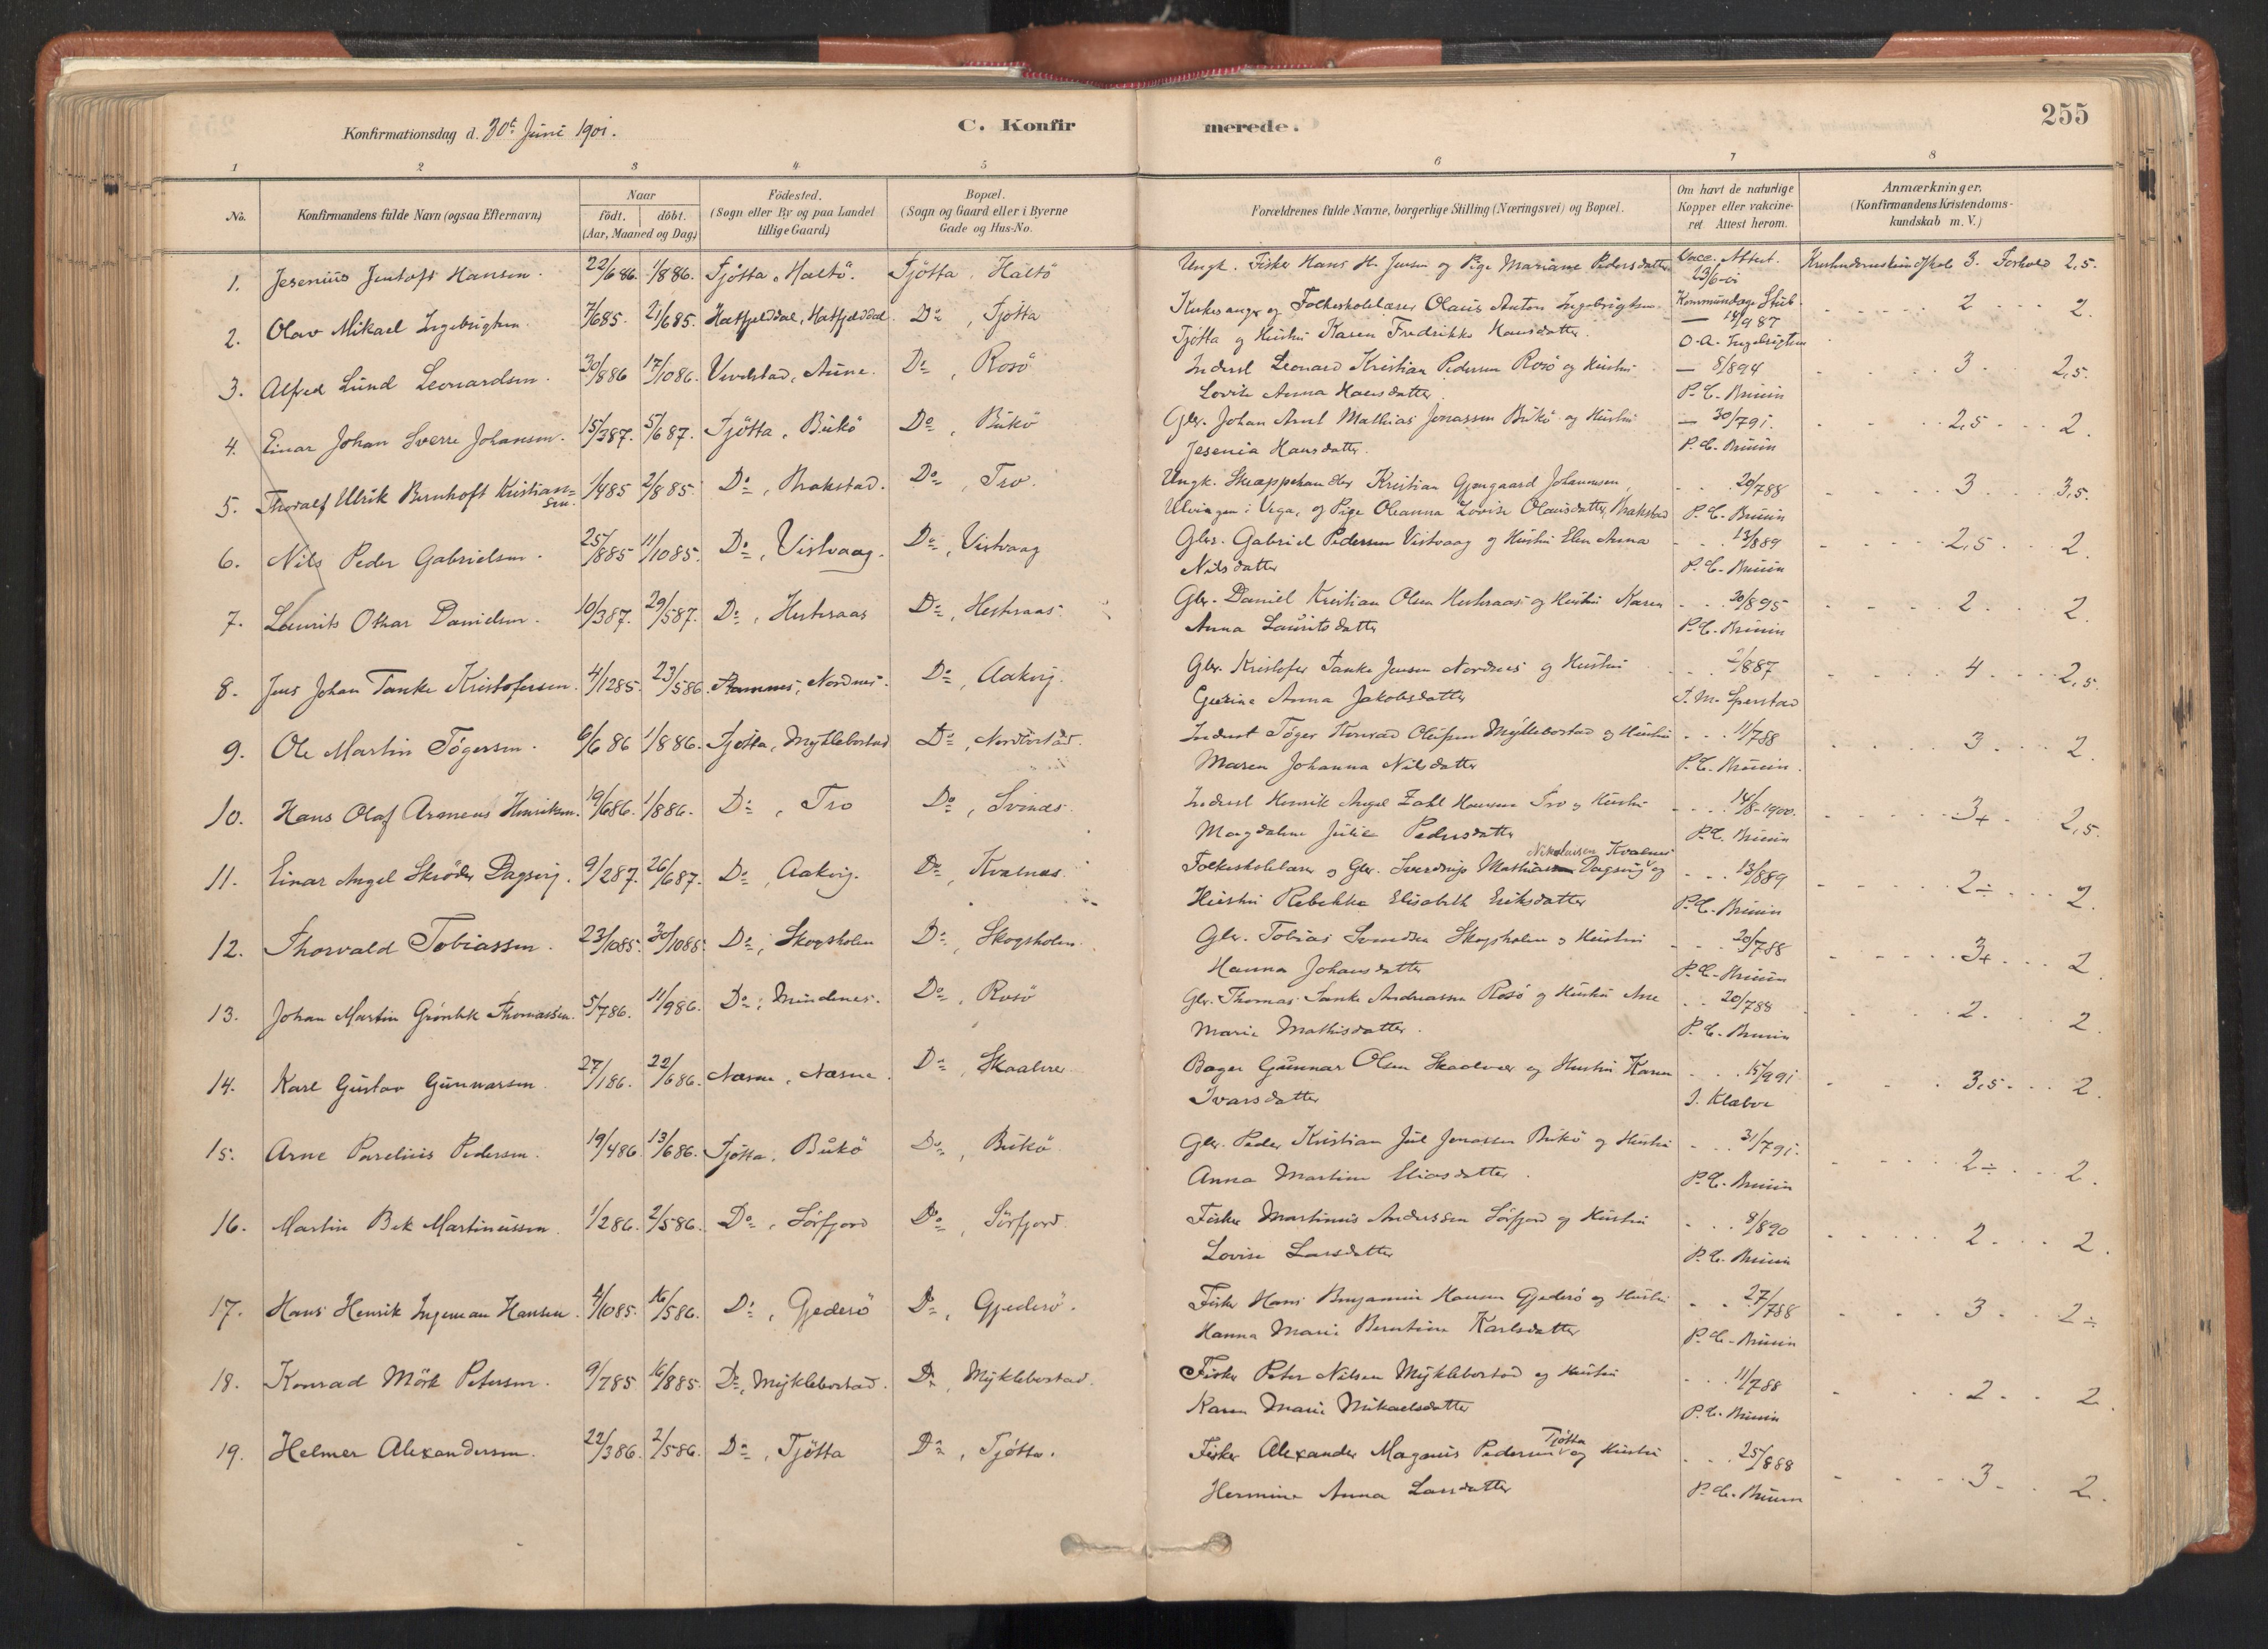 255
Konfirmationsdag d. 30t Juni 1901.
C. Konfirmerede.
1 2 3 4 5 6 7 8
No.
Konfirmandens fulde Navn (ogsaa Efternavn)
Naar
födt. döbt.
(Aar, Maaned og Dag)
Födested.
(Sogn eller By og paa Landet
tillige Gaard)
Bopæl.
(Sogn og Gaard eller i Byerne
Gade og Hus-No.
Forældrenes fulde Navne, borgerlige Stilling (Næringsvei) og Bopæl.
Om havt de naturlige
Kopper eller vakcine-
ret Attest herom.
Anmærkninger.
(Konfirmandens Kristendoms-
kundskab m. V.)
1. Jesenius Jentoft Hansen. 22/6 86. 1/8 86. Tjötta, Haltö. Tjötta, Haltö
Ungk. Fisker Hans H. Jensen og Pige Mariane Pedersdatter Vacc. Attest. 3. Forhold 2,5.
23/6-01
2. Olav Mikael Ingebrigtsen 7/6 85. 21/6 85. Hatfjelddal, Hatfjelddal Do, Tjötta
Kirkesanger og Folkeskolelærer Olaus Anton Ingebrigtsen 2 2.
Tjötta og Hustru Karen Fredrikke Hansdatter. — 14/9 87
O. A. Ingebrigtsen
3. Alfred Lund Leonardsen. 30/8 86 17/10 86. Vevelstad, Aune. Do, Rosö
Inderst Leonard Kristian Pedersen Rosö og Hustru — 8/8 94 3. 2,5.
Anna Hansdatter P. C. Bruun
4. Einar Johan Sverre Johansen. 15/3 87. 5/6 87. Tjötta, Bukö Do, Bukö
Gbr. Johan Arnt Mathias Jonassen Bukö og Hustru — 30/7 91. 2,5 2.
Jesenia Hansdatter. P. C. Bruun
5. Thoralf Ulrik Bernhoft Kristian=
sen. 1/4 85 2/8 85. Do, Brakstad. Do, Tro.
Ungk. Skræppehandler Kristian Johannesen, 20/7 88 3 3,5.
Ulvingen i Vega, og Pige Oleanna Lovise Olausdatter, Brakstad P. C. Bruun
6. Nils Peder Gabrielsen. 25/8 85 11/10 85. Do, Vistvaag. Do, Vistvaag
Gbr. Gabriel Pedersen Vistvaag og Hustru Elen Anna 13/8 89 2,5 2.
Nilsdatter P. C. Bruun
7. Laurits Othar Danielsen. 10/3 87. 29/5 87. Do, Hestraas Do, Hestraas.
Gbr. Daniel Kristian Olsen Hestraas og Hustru Karen 20/8 95 2 2.
Anna Lauritsdatter P. C. Bruun
8. Jens Johan Tanke Kristofersen. 4/12 85. 23/5 86. Stamnes, Nordnes. Do, Aakvig.
Gbr. Kristofer Tanke Jensen Nordnes og Hustru 2/8 87 4 2,5.
Gurine Anna Jakobsdatter
9. Ole Martin Tögersen. 6/6 86 1/8 86. Tjötta, Myklebostad Do, Nordbostad.
Inderst Töger Konrad Olufsen Myklebostad og Hustru 11/7 88 3. 2.
Maren Johanna Nilsdatter P. C. Bruun.
10. Hans Olaf Henriksen. 19/6 86. 1/8 86. Do, Tro Do, Svinæs.
Inderst Henrik Angel Zahl Hansen Tro og Hustru 14/8-1900. 3+ 2,5.
Magdalene Julie Pedersdatter P. C. Bruun
11. Einar Angel Skröder Dagsvig. 9/2 87. 26/6 87. Do, Aakvig. Do, Kvalnæs.
Nikolaisen Kvalnes
Folkeskolelærer og Gbr. Sverdrup Mathias Dagsvig og 13/8 89 2÷ 2.
Hustru Rebekka Elisabeth Eriksdatter P. C. Bruun
12. Thorvald Tobiassen. 23/10 85. 30/10 85. Do, Skogsholm Do, Skogsholm.
Gbr. Tobias Svendsen Skogsholm og Hustru 20/7 88 3+ 2.
Hanna Johansdatter P. C. Bruun
13. Johan Martin Grönbek Thomassen. 5/7 86. 11/9 86. Do, Mindenes. Do, Rosö
Gbr. Thomas Tanke Andreassen Rosö og Hustru Ane 20/7 88 2. 2.
Marie Mathisdatter. P. C. Bruun
14. Karl Gustav Gunnarsen 27/1 86. 22/6 86. Næsne, Næsne. Do, Skaalvær
Bager Gunnar Olsen Skaalvær og Hustru Karen 15/9 91 3,5. 2.
Ivarsdatter J. Klæboe
15. Arne Parelius Pedersen. 19/4 86. 13/6 86. Tjötta, Bukö Do, Bukö
Gbr. Peder Kristian Juul Jonassen Bukö og Hustru 31/7 91. 2÷ 2.
Anna Martine Eliasdatter. P. C. Bruun
16. Martin Bek Martinussen 1/2 86. 2/5 86. Do, Sörfjord Do, Sörfjord.
Fisker Martinus Andersen Sörfjord og Hustru 8/8 90 2. 2.
Lovise Larsdatter P. C. Bruun
17. Hans Henrik Ingeman Hansen. 4/10 85. 16/5 86. Do, Gjæderö Do, Gjæderö.
Fisker Hans Benjamin Hansen Gjæderö og Hustru 27/7 88 3 2÷
Hanna Marie Berntine Karlsdatter P. C. Bruun
18. Konrad Mörk Petersen. 9/7 85 16/8 85. Do, Myklebostad. Do, Myklebostad.
Fisker Peter Nilsen Myklebostad og Hustru 11/7 88 2 2.
Karen Marie Mikaelsdatter P. C. Bruun
19. Helmer Alexandersen. 22/3 86. 2/5 86. Do, Tjötta Do, Tjötta.
Tjötta
Fisker Alexander Magnus Pedersen og Hustru 25/8 88 3. 2.
Hermine Anna Larsdatter P. C. Bruun